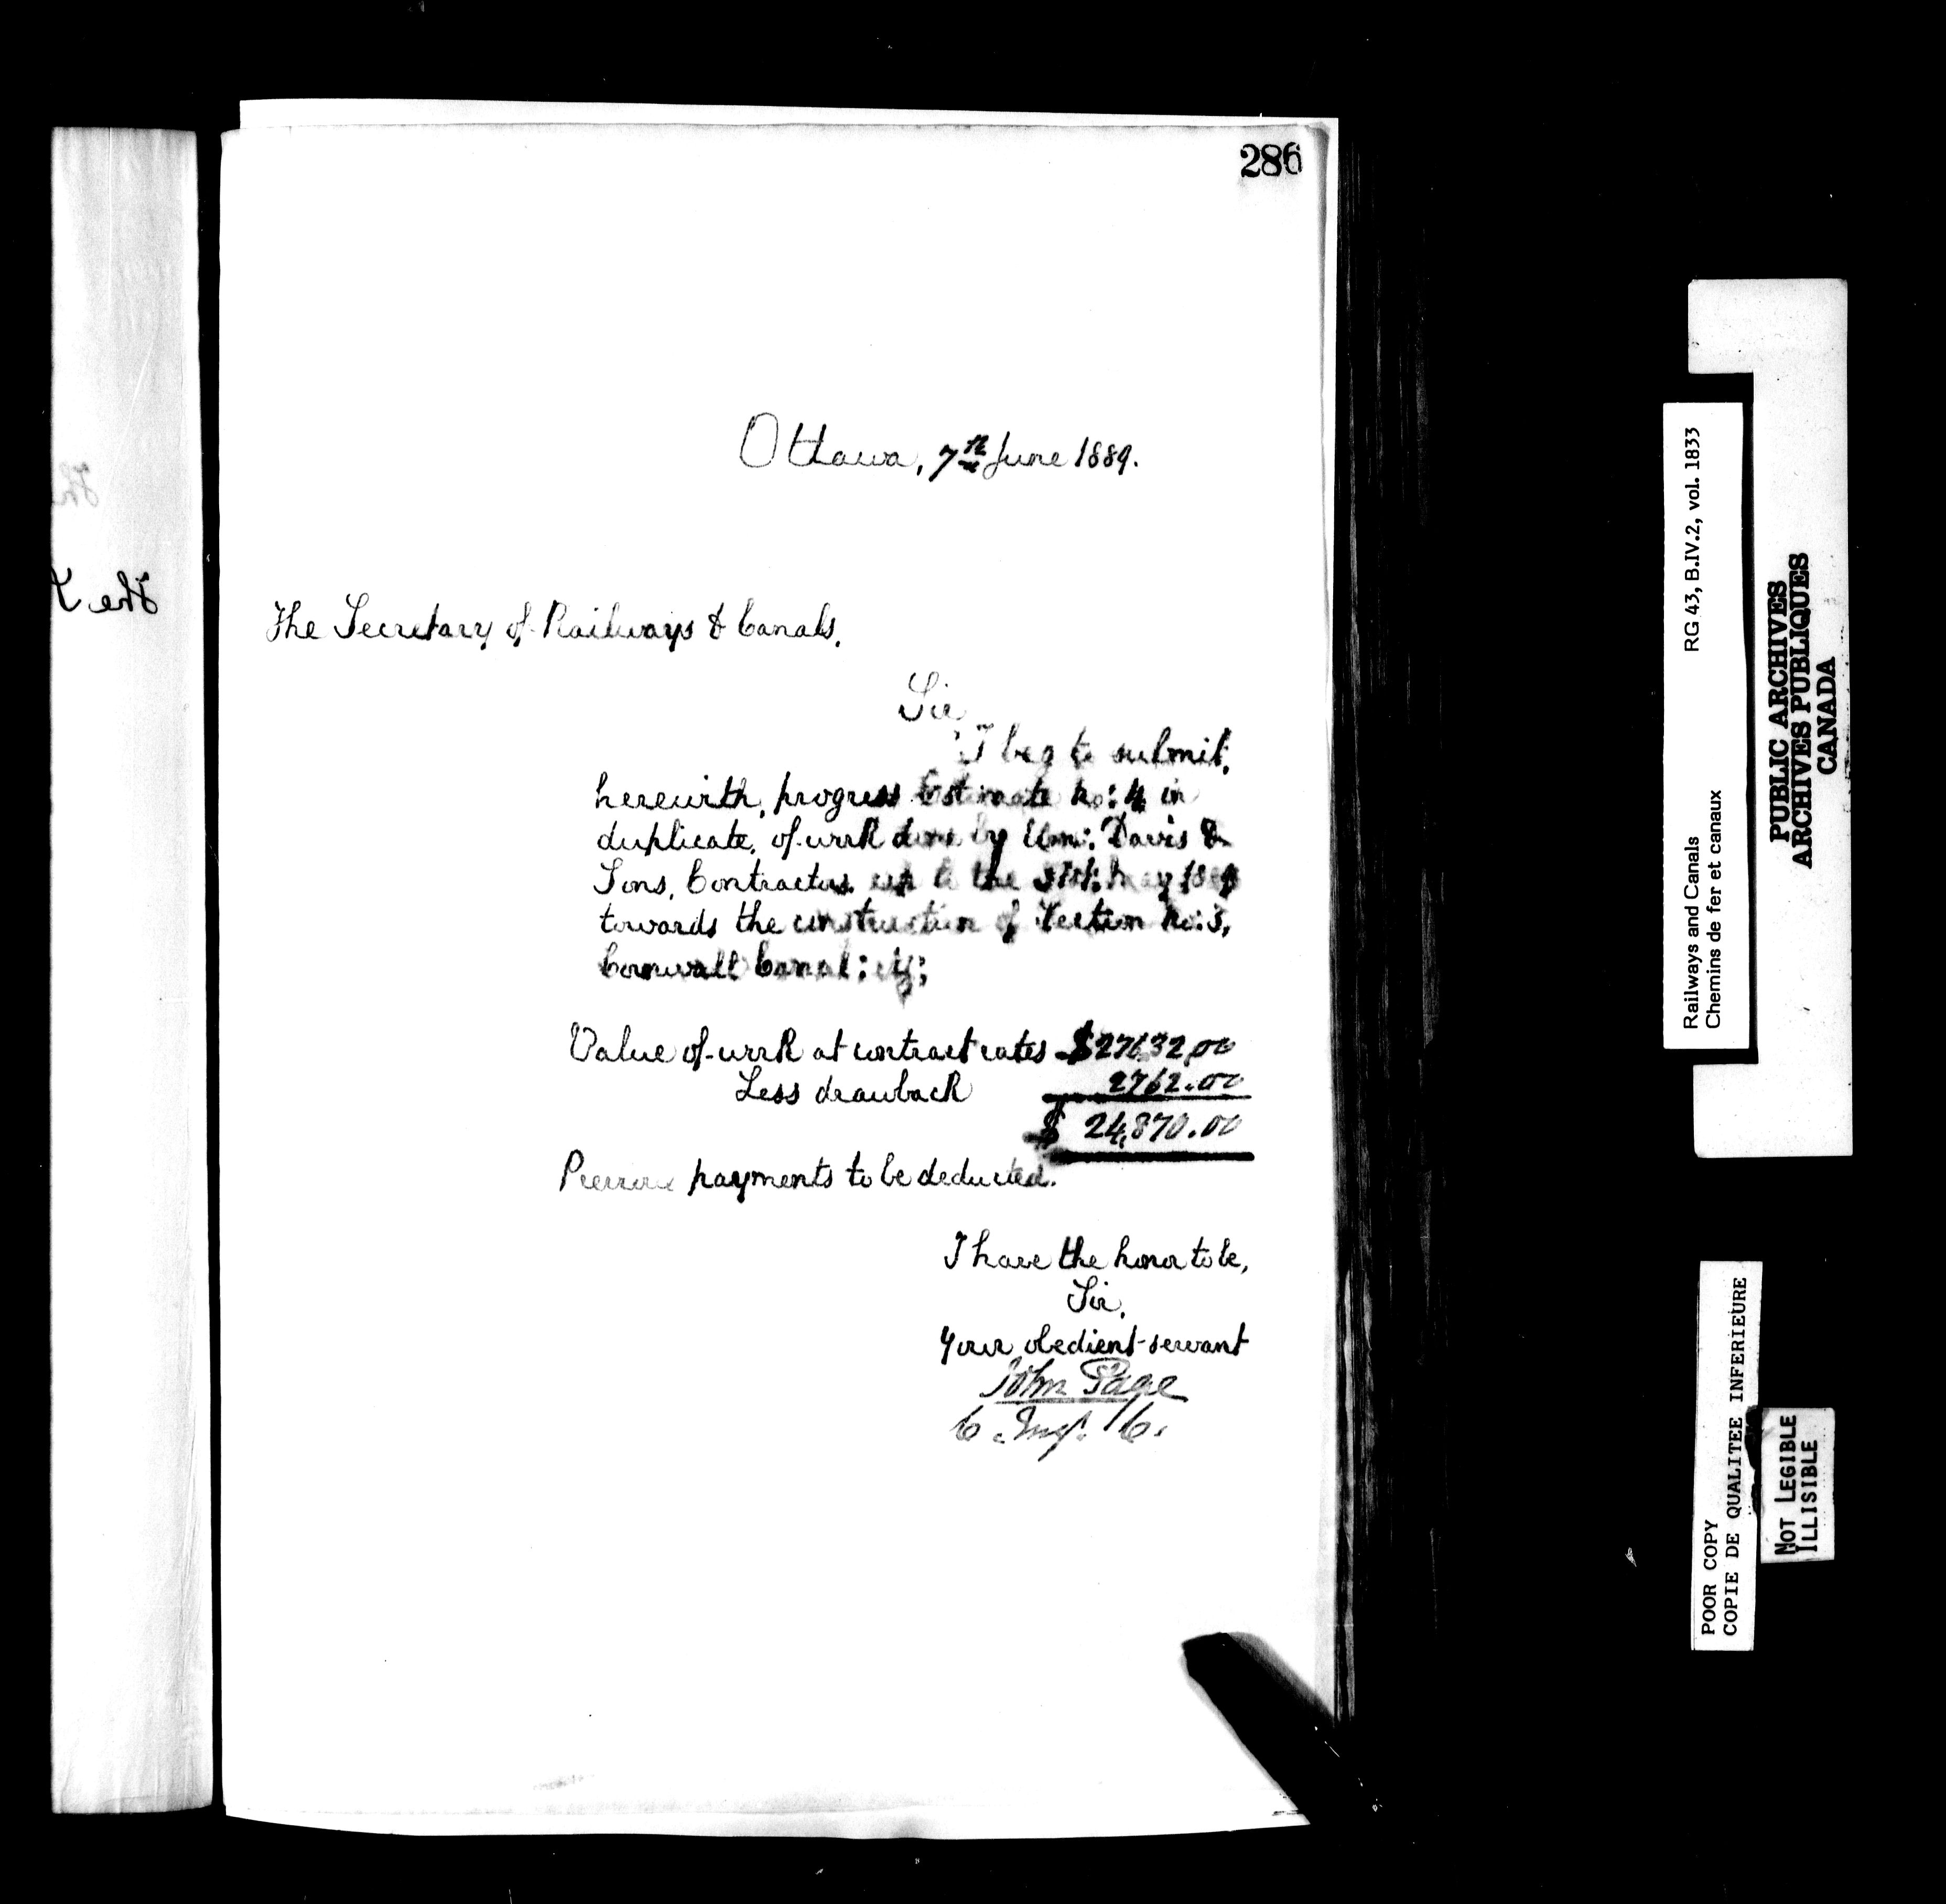 286
Ottawa, 7th June 1889.
The Secretary of Railways & Canals,
Sir,
I beg to submit,
herewith, progress Estimate No: 4 in
duplicate, of work done by Wm: Davis &
Sons, Contractors up to the 31st: May 1889
towards the construction of Section No: 3,
Cornwall Canal:
Value of work at contract rates $27632.00
Less drawback 2762.00
$ 24,870.00
Previous payments to be deducted.
I have the honor to be,
Sir,
Your obedient servant
John Page
C. Engr. C.
The
RG 43, B.IV.2, vol. 1833
Railways and Canals
Chemins de fer et canaux
PUBLIC ARCHIVES
ARCHIVES PUBLIQUES
CANADA
POOR COPY
COPIE DE QUALITEE INFERIEURE
NOT LEGIBLE
ILLISIBLE